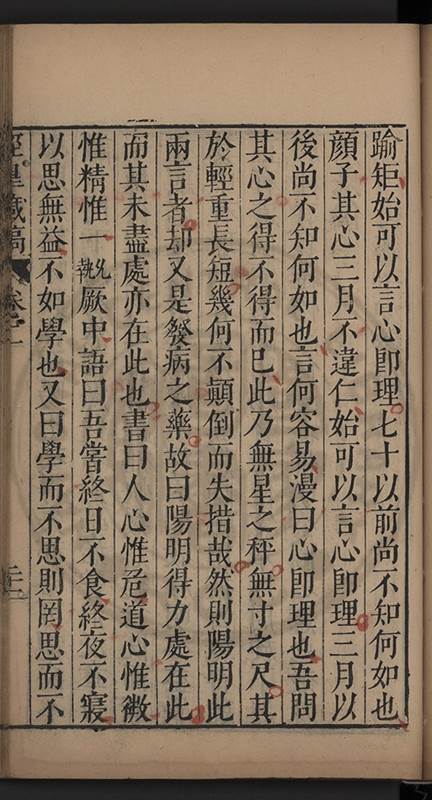 踰矩始可以言心卽理七十以前尚不知何如也
顔子其心三月不違仁始可以言心卽理三月以
後尚不知何如也言何容易漫曰心卽理也吾問
其心之得不得而已此乃無星之秤無寸之尺其
於輕重長短幾何不顛倒而失措哉然則陽明此
兩言者却又是發病之藥故曰陽明得力處在此
而其未盡處亦在此也書曰人心惟危道心惟微
惟精惟一允執厥中語曰吾嘗終日不食終夜不寢
以思無益不如學也又曰學而不思則罔思而不
涇臯藏稿 卷之二 二三